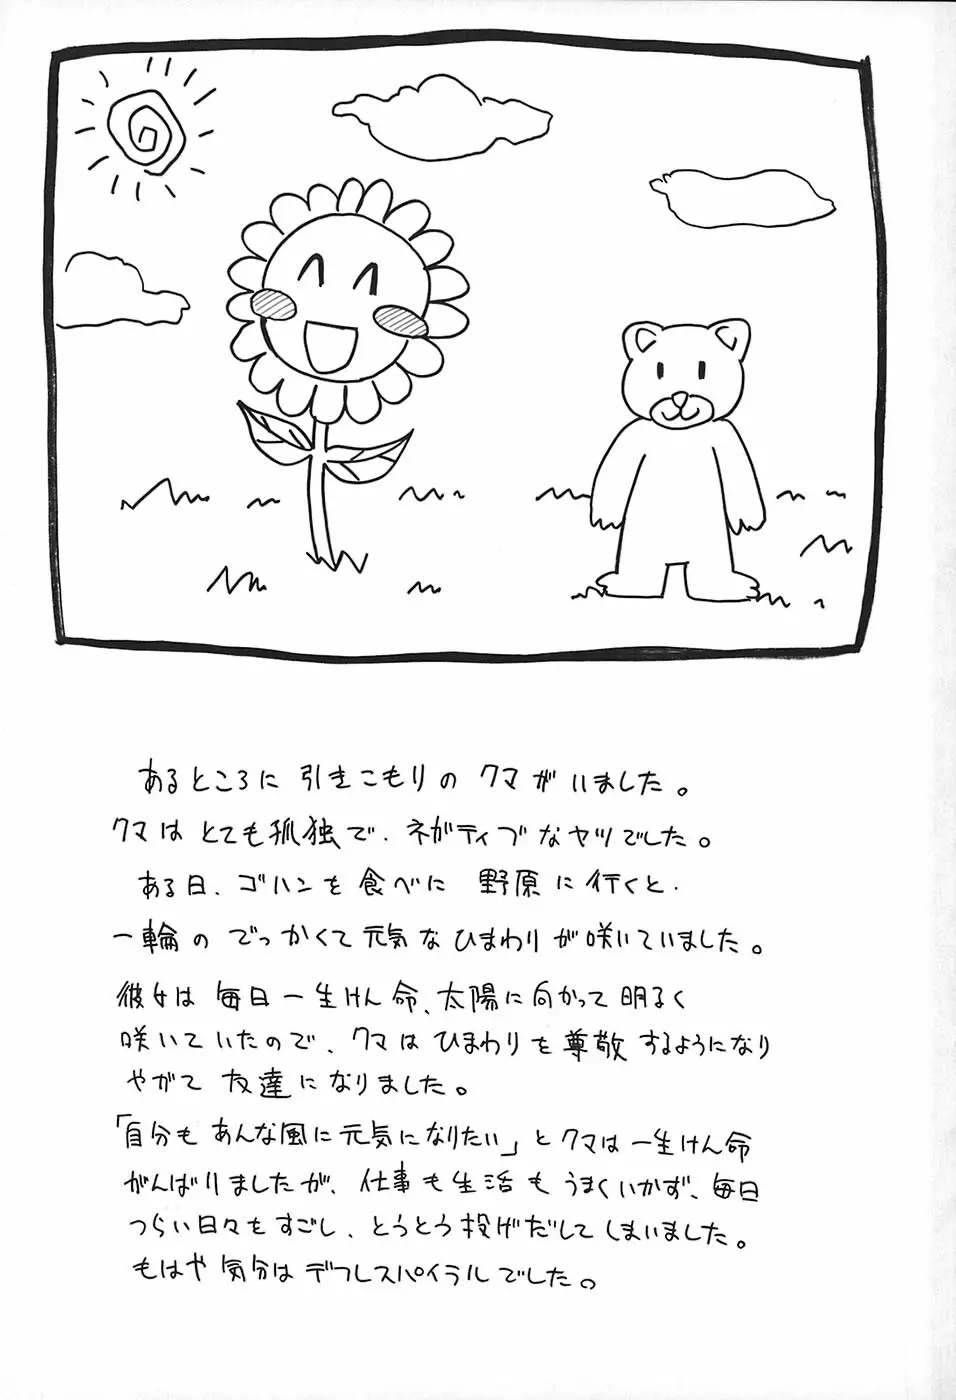 あるところに 引きこもりの クマが いました。
クマは とても孤独で、ネガティブなヤツでした。
ある日、ゴハンを 食べに 野原に 行くと、
一輪の でっかくて 元気な ひまわりが 咲いていました。
彼女は 毎日 一生けん命、太陽に向かって 明るく
咲いていたので、クマは ひまわりを 尊敬するようになり
やがて 友達に なりました。
「自分も あんな風に 元気になりたい」と クマは 一生けん命
がんばりましたが、仕事も 生活も うまくいかず、毎日
つらい日々を すごし、とうとう 投げだして しまいました。
もはや 気分は デフレスパイラルでした。